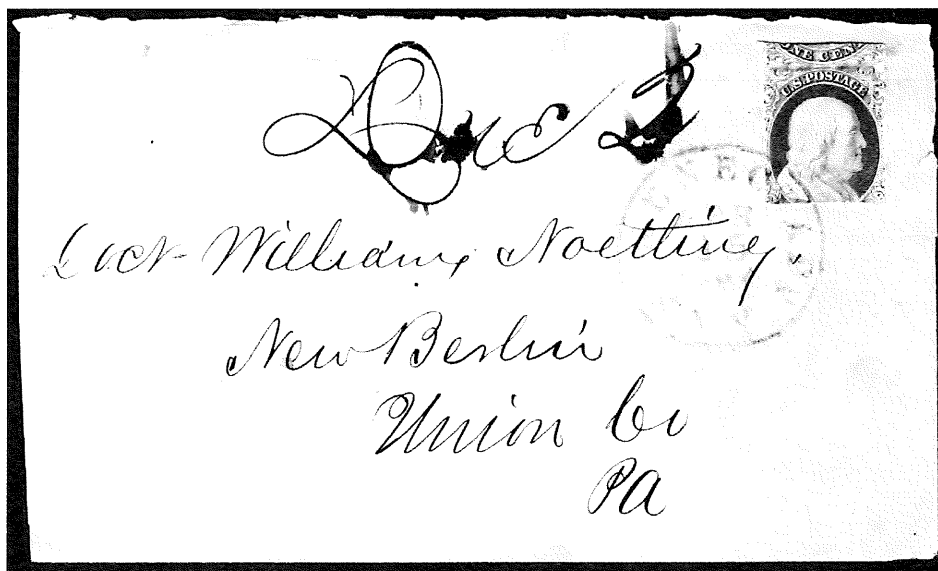 Due 2
ONE CEN
U.S.POSTAGE
Doct William Noetling,
New Berlin
Union Co
PA